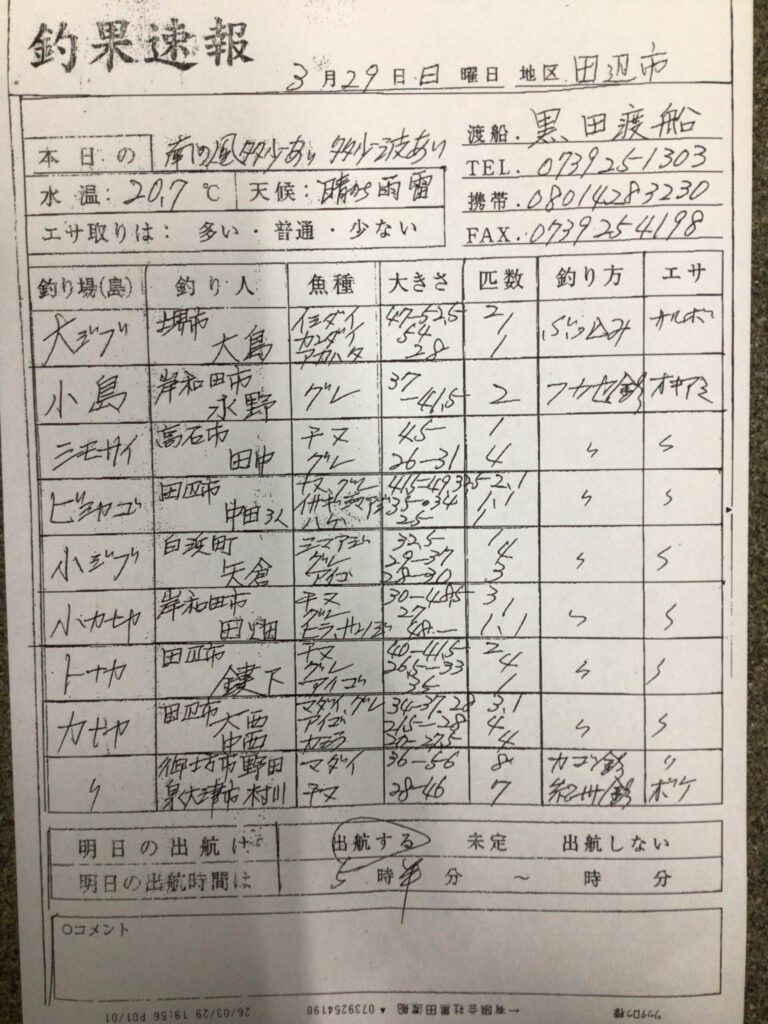 釣果速報
3月29日日曜日 地区 田辺市
渡船. 黒田渡船
TEL. 0739251303
携帯. 08014283230
FAX. 0739254198
本日の 南の風多少あり 多少波あり
水温: 20.7℃ 天候: 晴から雨雷
エサ取りは: 多い・普通・少ない
釣り場(島) 釣り人 魚種 大きさ 匹数 釣り方 エサ
大ジブ 堺市 大島 イシダイ 47-52.5 2 ぶっ込み
カンダイ 54 1
アカハタ 28 1
小島 岸和田市 水野 グレ 37-41.5 2 フカセ釣 オキアミ
高石市 田中 チヌ 45 1 〃 〃
グレ 26-31 4
ビシャゴ 田辺市 中田 チヌ.グレ
25 1
小ジブ 白浜町 矢倉 シマアジ 32.5 1 〃 〃
グレ 29-37 4
アイゴ 28-30 3
小カセヤ 岸和田市 田畑 チヌ 30-48.5 3 〃 〃
グレ 27 1
1.1
トナカ 田辺市 鎌下 チヌ 40-41.5 2 〃 〃
グレ 26.5-33 4
アイゴ 35 1
カセヤ 田辺市 大西 中西 マダイ.グレ 34-37.28 3.1 〃 〃
アイゴ 21.5-28 4
4
〃 御坊市 野田 マダイ 36-56 8 カゴ釣 〃
泉大津市 村川 チヌ 28-46 7 紀州釣 ボケ
明日の出航は 出航する 未定 出航しない
明日の出航時間は 5時半分 ~ 時 分
○コメント
26/03/29 19:56 P01/01 ▲ 0739254198 有限会社黒田渡船→ ツッタロウ様